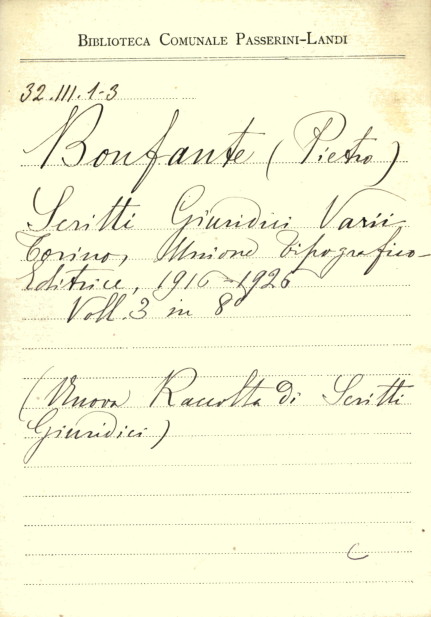 BIBLIOTECA COMUNALE PASSERINI-LANDI
32.III.1-3
Bonfante (Pietro)
Scritti Giuridici Varii
Torino, Unione Tipografico-
Editrice, 1916-1926
Voll. 3 in 8º
(Nuova Raccolta di Scritti
Giuridici)
C